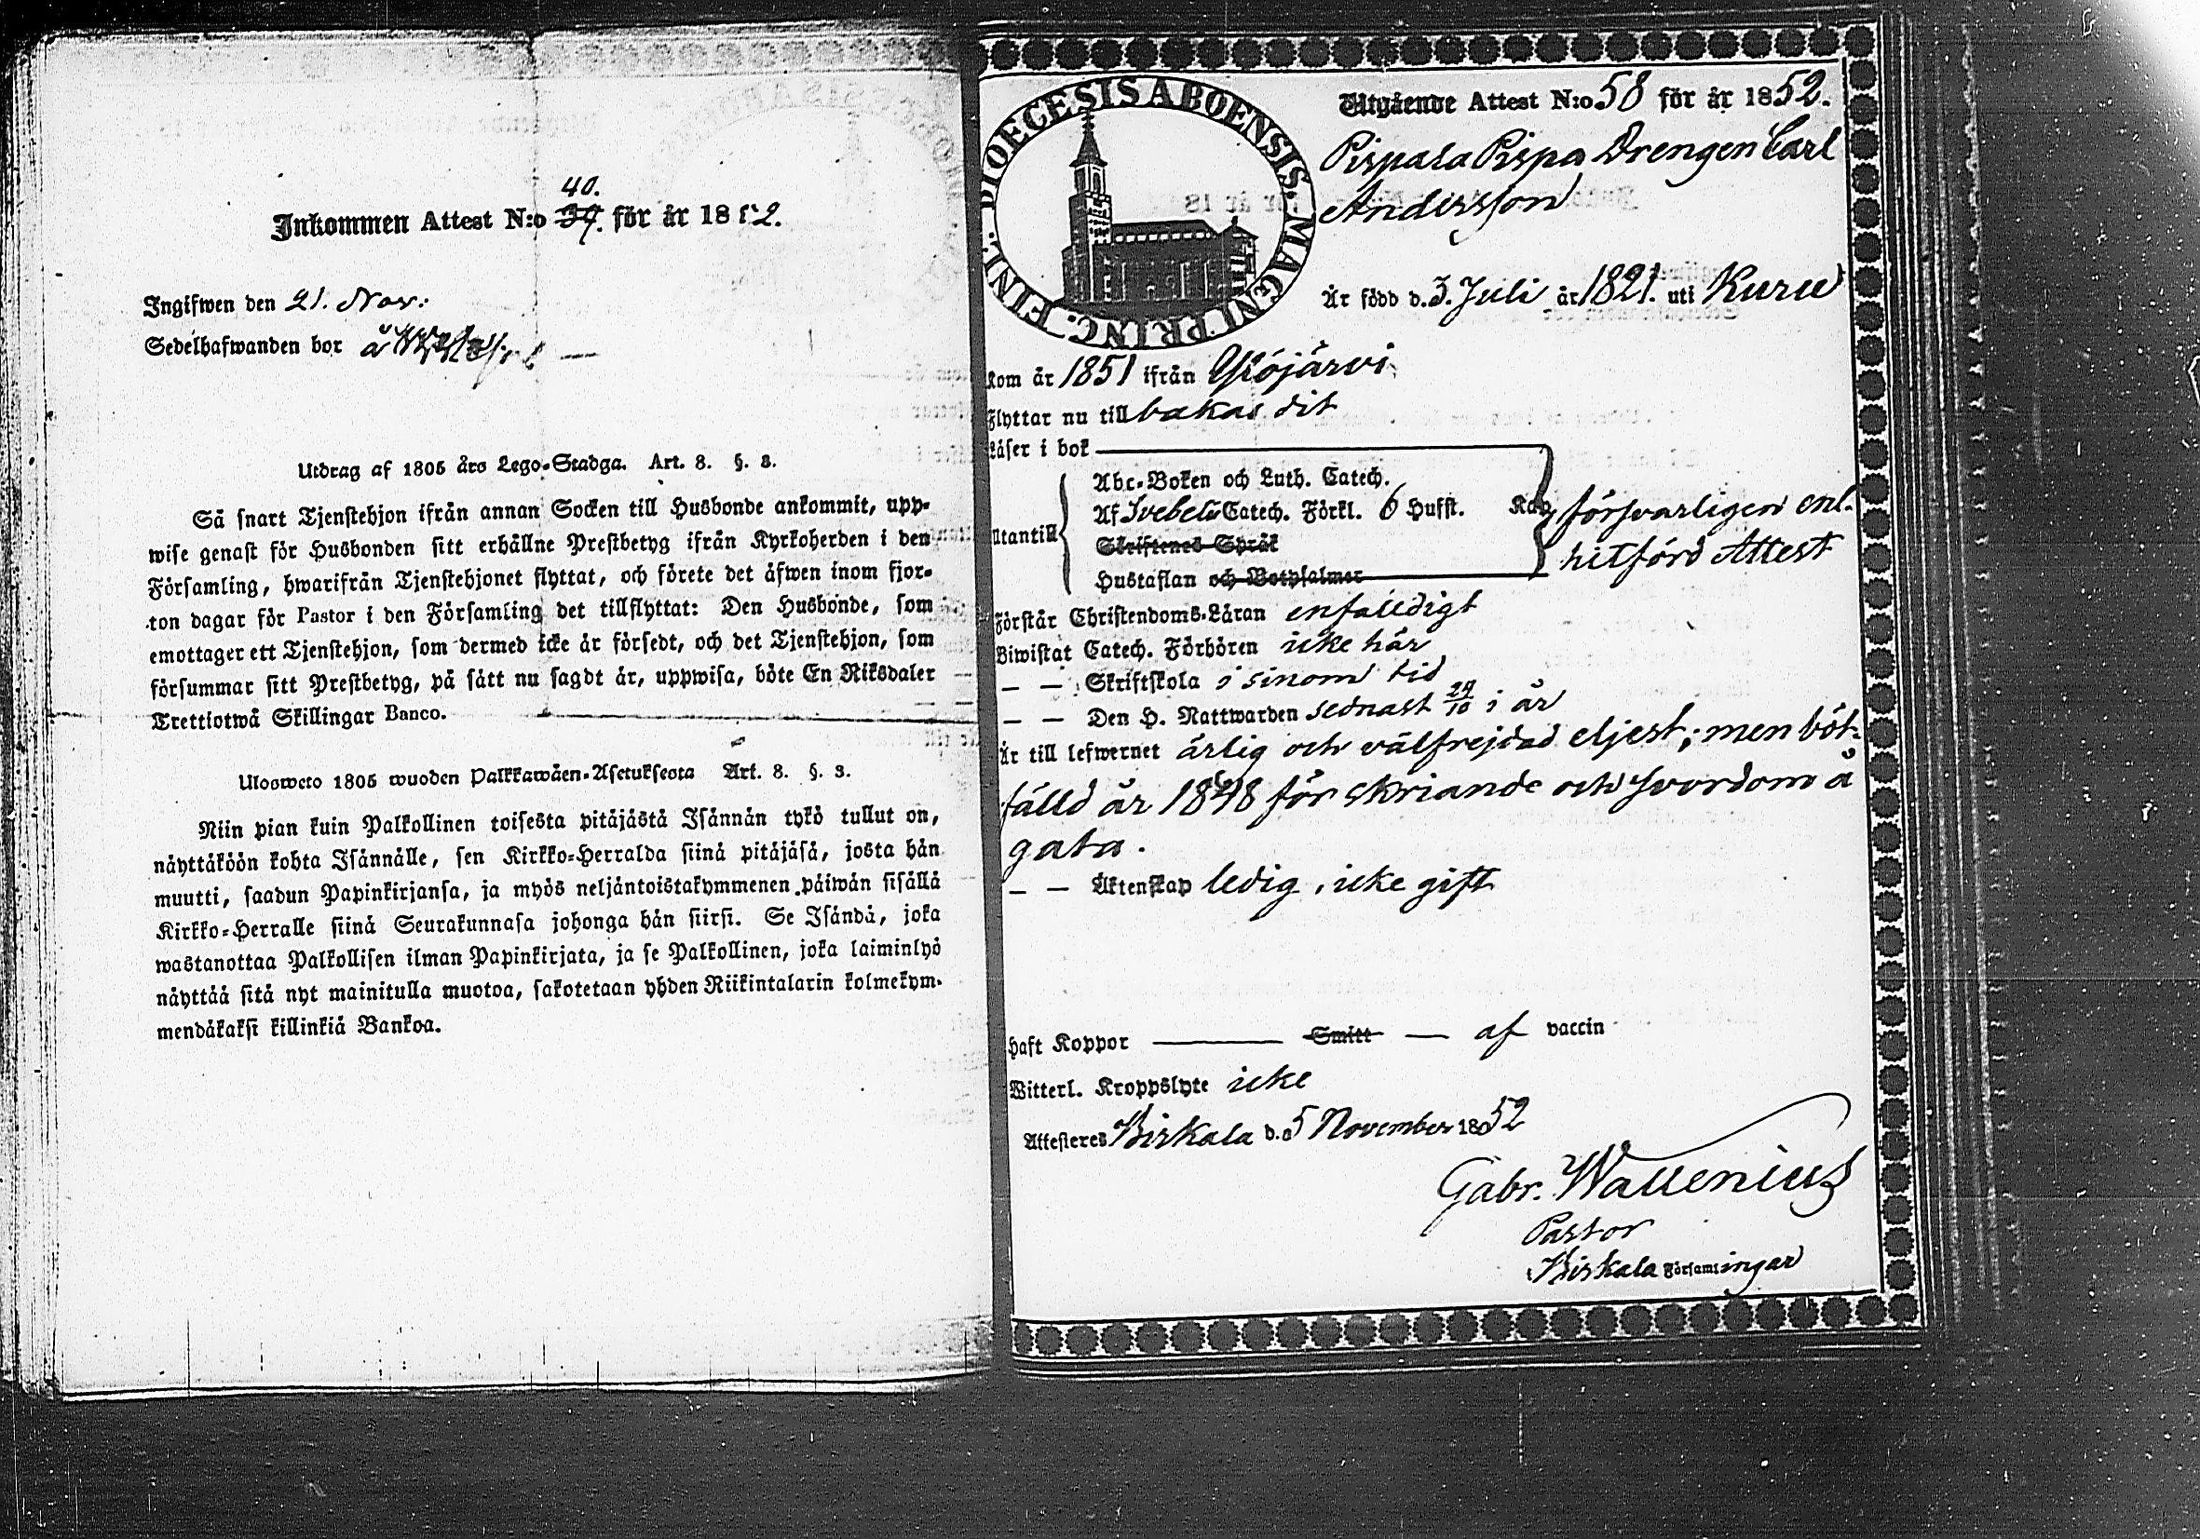 40.
Inkommen Attest N:o 39. för år 1852.
Ingifwen den 21. Nov.
Sedelhafwanden bor å
Utdrag af 1805 års Lego-Stadga. Art. 8. §. 3.
Så snart Tjenstehjon ifrån annan Socken till Husbonde ankommit, upp-
wise genast för Husbonden sitt erhållne Prestbetyg ifrån Kyrkoherden i den
Församling, hwarifrån Tjenstehjonet flyttat, och förete det äfwen inom fjor-
ton dagar för Pastor i den Församling det tillflyttat: Den Husbonde, som
emottager ett Tjenstehjon, som dermed icke är försedt, och det Tjenstehjon, som
försummar sitt Prestbetyg, på sätt nu sagdt är, uppwisa, böte En Riksdaler
Trettiotwå Skillingar Banco.
Ulosweto 1805 wuoden Palkkawäen-Asetuksesta Art. 8. §. 3.
Niin pian kuin Palkollinen toisesta pitäjästä Isännän tykö tullut on,
näyttäköön kohta Isännälle, sen Kirkko-Herralda siinä pitäjäsä, josta hän
muutti, saadun Papinkirjansa, ja myös neljäntoistakymmenen päiwän sisällä
Kirkko-Herralle siinä Seurakunnasa johonga hän siirsi. Se Isändä, joka
wastanottaa Palkollisen ilman Papinkirjata, ja se Palkollinen, joka laiminlyö
näyttää sitä nyt mainitulla muotoa, sakotetaan yhden Riikintalarin kolmekym-
mendäkaksi killinkiä Bankoa.
DIOECESIS ABOENSIS. MAGNI PRINC. FINL.
Utgående Attest N:o 58 för år 1852.
Pispala Pispa Drengen Carl
Andersson
Är född d. 3. Juli år 1821. uti Kuru
Kom år 1851 ifrån Ylöjärvi
Flyttar nu till bakas dit
Läser i bok
Abc-Boken och Luth. Catech.
Utantill Af Svebelii Catech. Förkl. 6 Hufst. Kap. försvarligen enl.
Skriftenes Språk hitförd Attest
Hustaflan och Botpsalmer
Förstår Christendoms-Läran enfaldigt
Biwistat Catech. Förhören icke här
— — Skriftskola i sinom tid
— — Den H. Nattwarden sednast 24/10 i år
Är till lefwernet ärlig och välfrejdad eljest; men böt-
fälld år 1848 för skriande och svordom å
gata.
— — Äktenskap ledig, icke gift
Haft Koppor — Smitt — af vaccin
Witterl. Kroppslyte icke
Attesteres Birkala d. 5 November 1852
Gabr. Wallenius
Pastor
Birkala Församlingar